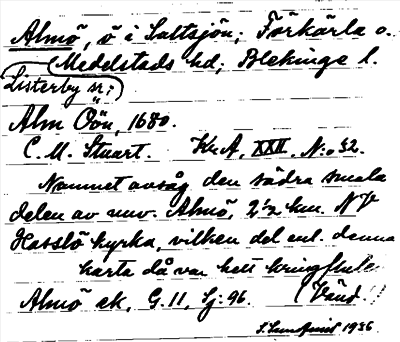 Almö, ö i Saltsjön; Förkärla o.
Medelstads hd; Blekinge l.
Listerby sr;
Alm Öön, 1680.
C. M. Stuart. Kr.A, XXII, N:o 32.
Namnet avsåg den södra smala
delen av nuv. Almö, 2½ km. NV
Hasslö kyrka, vilken del enl. denna
karta då var helt kringfluten.
Almö ek, G. 11, Sj: 96. (Vänd!)
1936